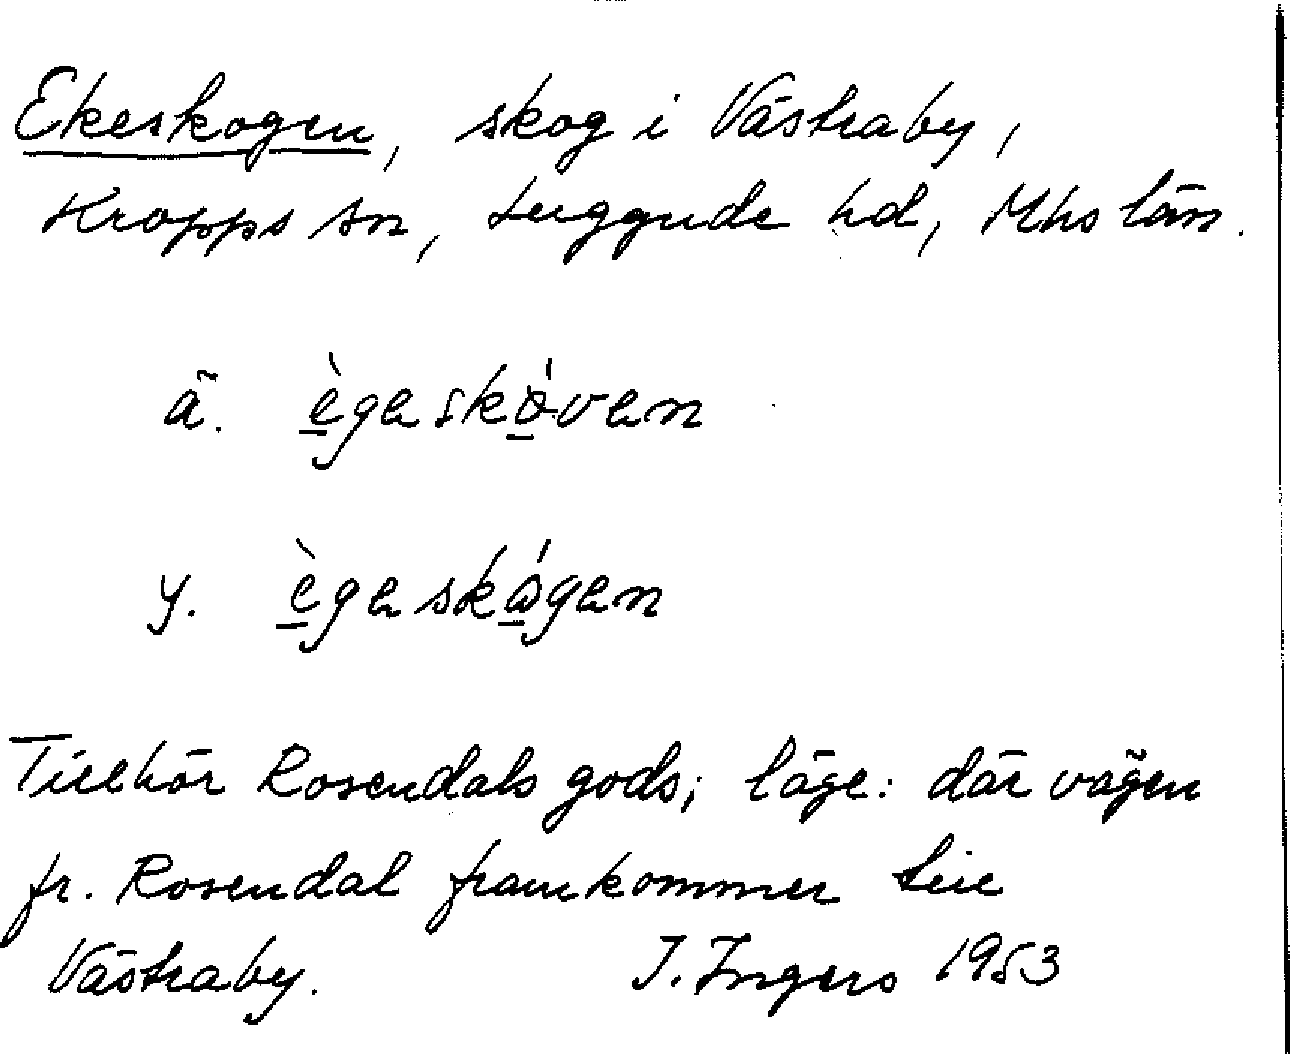 Ekeskogen, skog i Västraby,
Kropps sn, Luggude hd, Mhs län.
ä. ègeskóven
y. ègeskógen
Tillhör Rosendals gods; läge: där vägen
fr. Rosendal framkommer till
Västraby. I. Ingers 1953